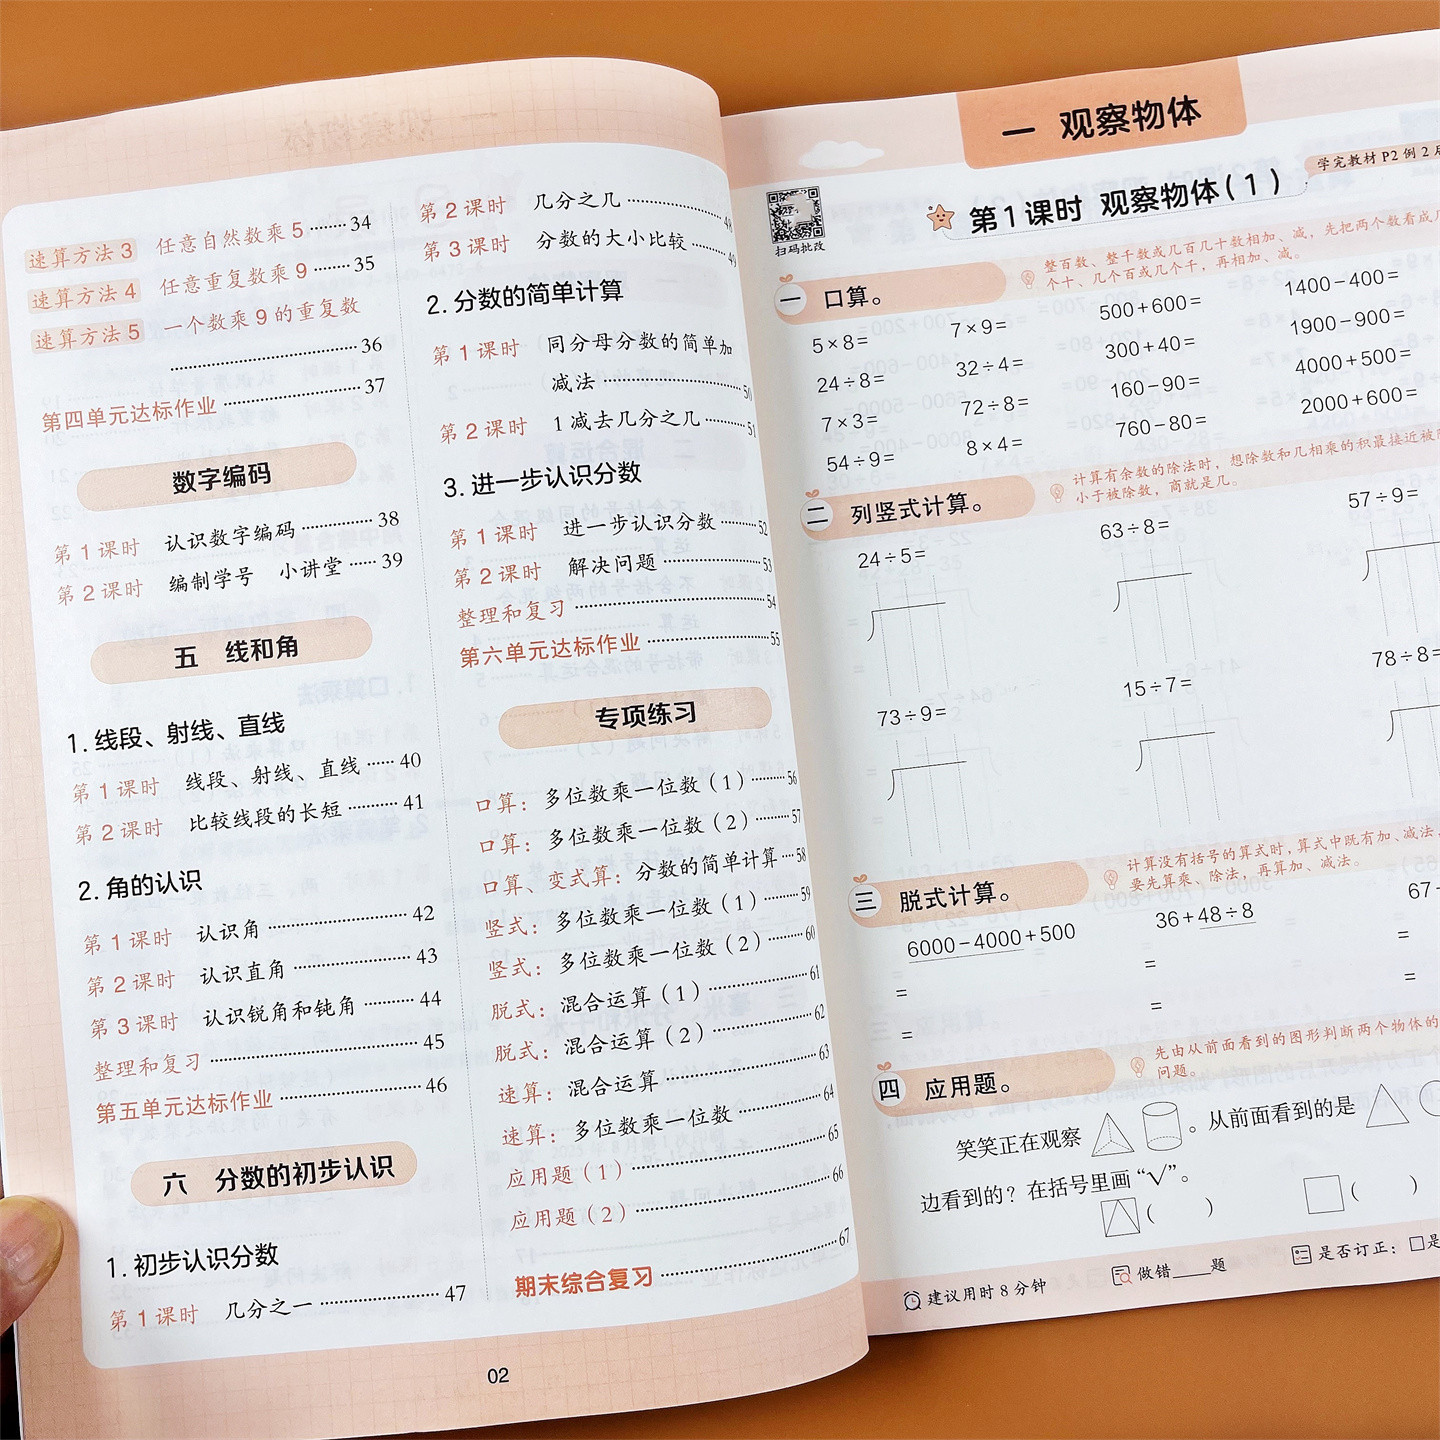 速算方法 3 任意自然数乘 5 ……… 34
速算方法 4 任意重复数乘 9 ……… 35
速算方法 5 一个数乘 9 的重复数
……… 36
第四单元达标作业 ……… 37
数字编码
第 1 课时 认识数字编码 ……… 38
第 2 课时 编制学号 小讲堂 ……… 39
五 线和角
1. 线段、射线、直线
第 1 课时 线段、射线、直线 ……… 40
第 2 课时 比较线段的长短 ……… 41
2. 角的认识
第 1 课时 认识角 ……… 42
第 2 课时 认识直角 ……… 43
第 3 课时 认识锐角和钝角 ……… 44
整理和复习 ……… 45
第五单元达标作业 ……… 46
六 分数的初步认识
1. 初步认识分数
第 1 课时 几分之一 ……… 47
第 2 课时 几分之几 ……… 48
第 3 课时 分数的大小比较 ……… 49
2. 分数的简单计算
第 1 课时 同分母分数的简单加
减法 ……… 50
第 2 课时 1 减去几分之几 ……… 51
3. 进一步认识分数
第 1 课时 进一步认识分数 ……… 52
第 2 课时 解决问题 ……… 53
整理和复习 ……… 54
第六单元达标作业 ……… 55
专项练习
口算：多位数乘一位数（1）……… 56
口算：多位数乘一位数（2）……… 57
口算、变式算：分数的简单计算 ……… 58
竖式：多位数乘一位数（1）……… 59
竖式：多位数乘一位数（2）……… 60
脱式：混合运算（1）……… 61
脱式：混合运算（2）……… 62
速算：混合运算 ……… 63
速算：多位数乘一位数 ……… 64
应用题（1）……… 65
应用题（2）……… 66
期末综合复习 ……… 67
02
一 观察物体
学完教材 P2 例 2
扫码批改
第 1 课时 观察物体（1）
一 口算。
整百数、整千数或几百几十数相加、减，先把两个数看成几
个十、几个百或几个千，再相加、减。
5×8= 7×9= 500+600= 1400-400=
24÷8= 32÷4= 300+40= 1900-900=
7×3= 72÷8= 160-90= 4000+500=
54÷9= 8×4= 760-80= 2000+600=
二 列竖式计算。
计算有余数的除法时，想除数和几相乘的积最接近被除
小于被除数，商就是几。
24÷5= 63÷8= 57÷9=
73÷9= 15÷7= 78÷8=
三 脱式计算。
计算没有括号的算式时，算式中既有加、减法，
要先算乘、除法，再算加、减法。
6000-4000+500 36+48÷8 67-
= = =
= = =
四 应用题。
先由从前面看到的图形判断两个物体的
问题。
笑笑正在观察 。从前面看到的是
边看到的？在括号里画“√”。
（ ） （ ）
建议用时 8 分钟 做错____题 是否订正：□是